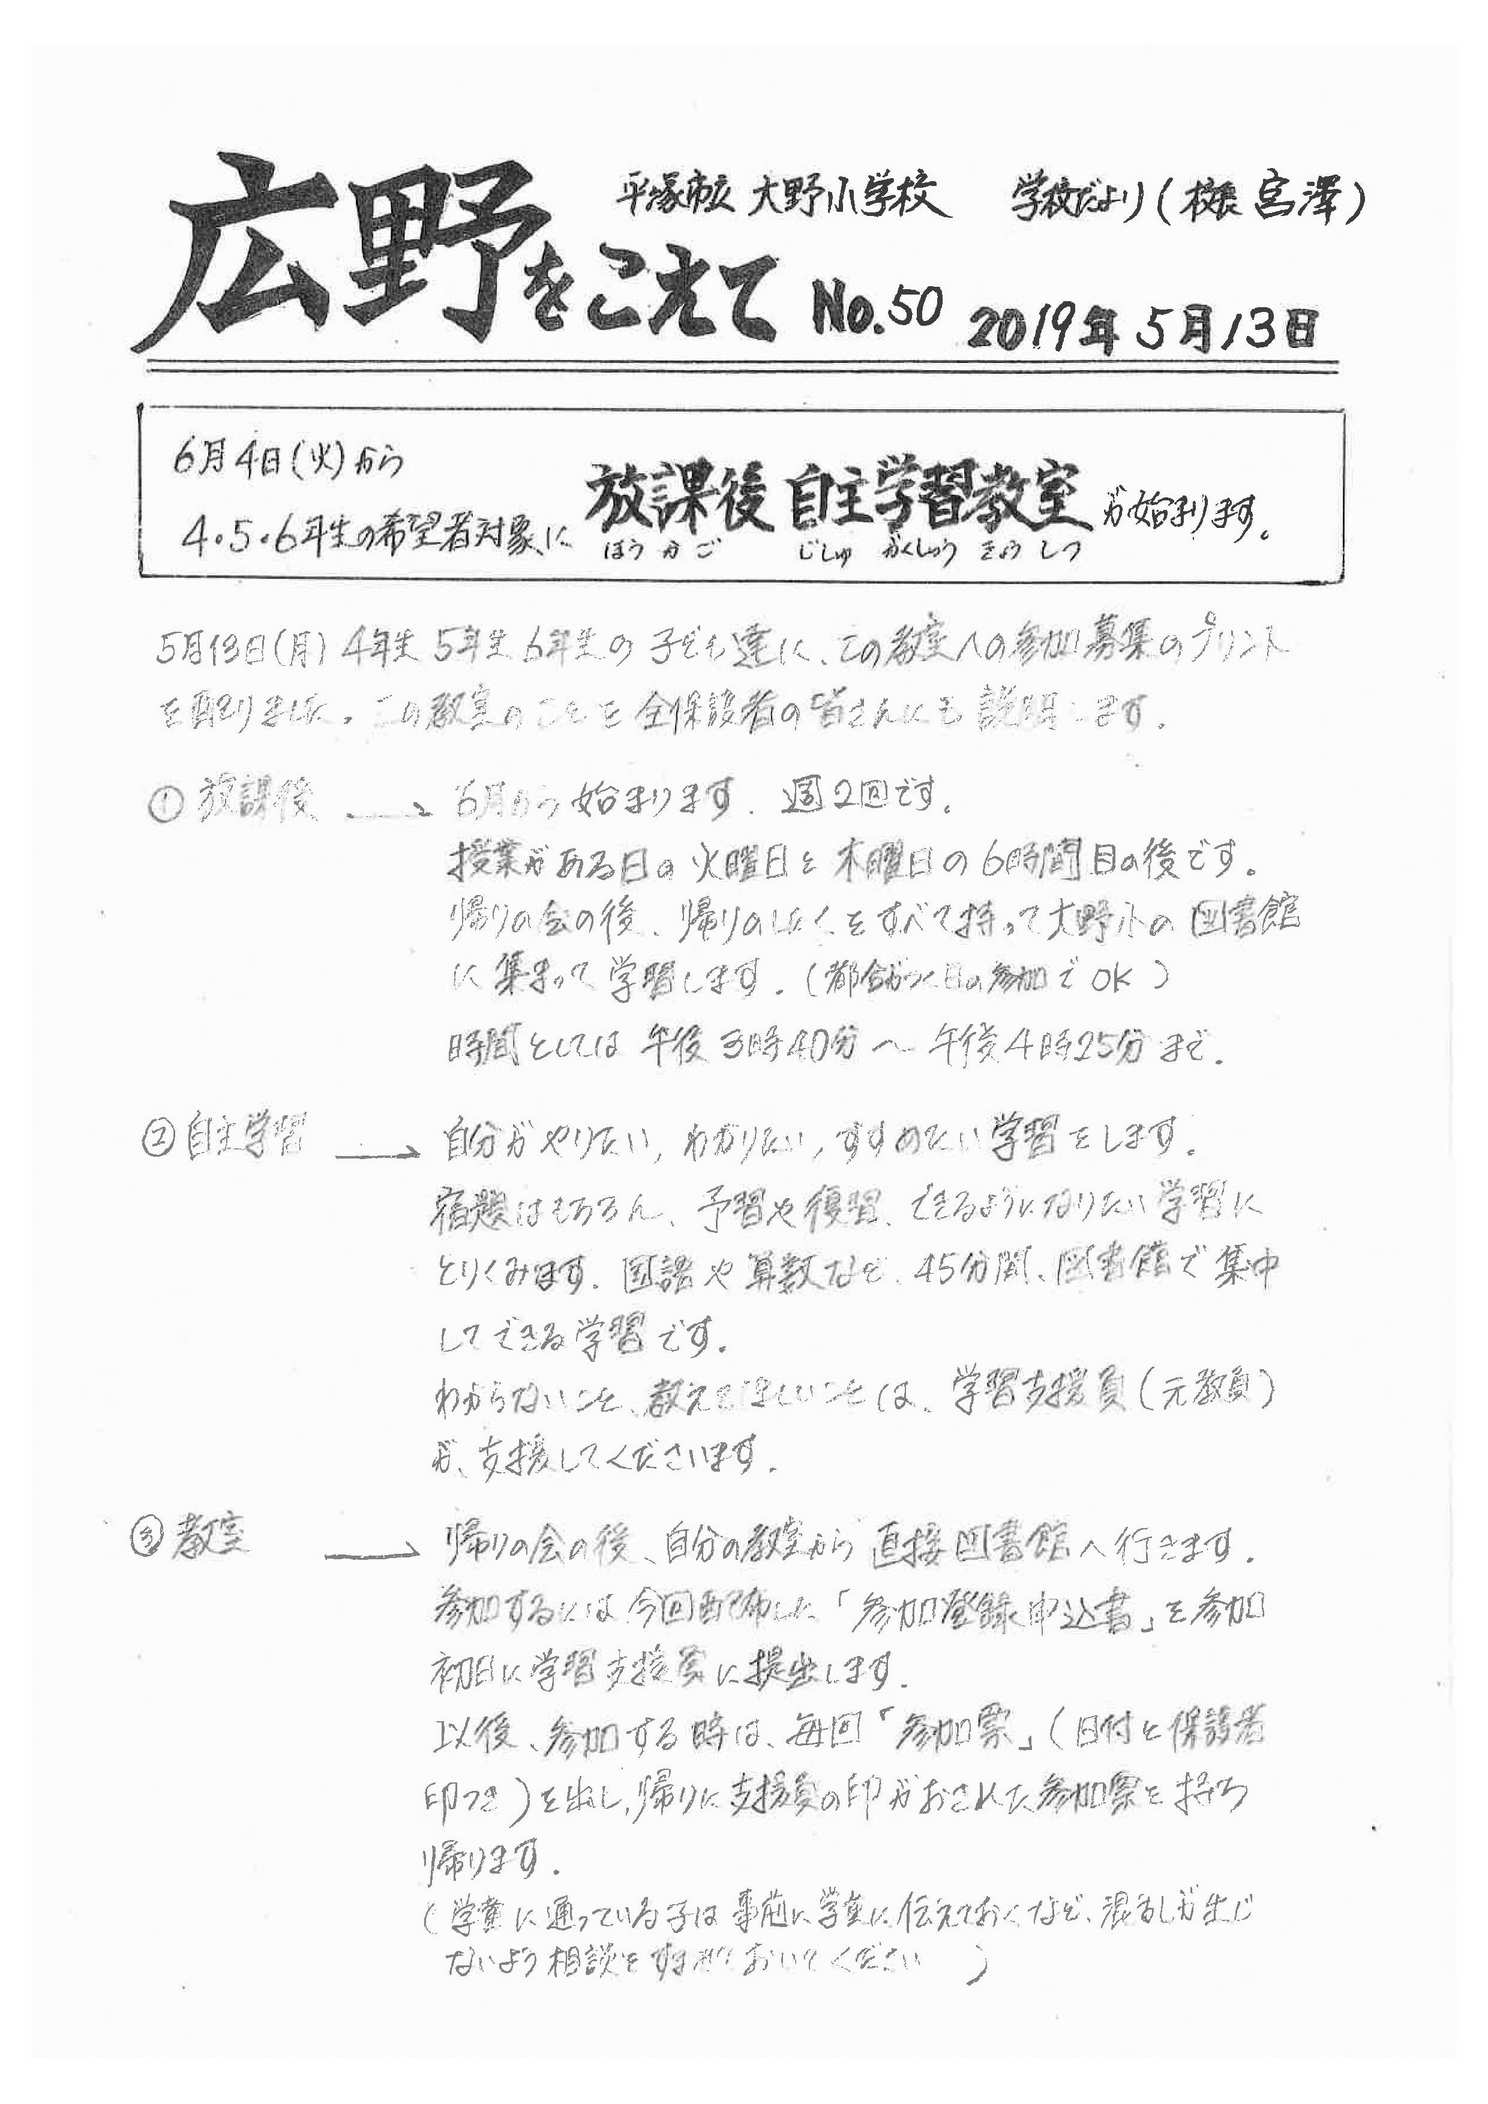 平塚市立 大野小学校 学校だより(校長 宮澤)
広野をこえて No.50 2019年5月13日
6月4日(火)から
4・5・6年生の希望者対象に 放課後 自主学習教室 が始まります。
ほうかご じしゅ がくしゅう きょうしつ
5月13日(月)4年生 5年生 6年生の子ども達に、この教室への参加募集のプリント
を配りました。この教室のことを全保護者の皆さんにも説明します。
① 放課後 → 6月から始まります。週2回です。
授業がある日の火曜日と木曜日の6時間目の後です。
帰りの会の後、帰りのしたくをすべて持って大野小の図書館
に集まって学習します。(都合がつく日の参加でOK)
時間としては午後3時40分〜午後4時25分まで。
② 自主学習 → 自分がやりたい,わかりたい,すすめたい学習をします。
宿題はもちろん、予習や復習、できるようになりたい学習に
とりくみます。国語や算数など、45分間、図書館で集中
してできる学習です。
わからないこと、教えてほしいことは、学習支援員(元教員)
が、支援してくださいます。
③ 教室 → 帰りの会の後、自分の教室から直接図書館へ行きます。
参加するには今回配布した「参加登録申込書」を参加
初日に学習支援員に提出します。
以後、参加する時は、毎回「参加票」(日付と保護者
印つき)を出し,帰りに支援員の印がおされた参加票を持ち
帰ります。
(学童に通っている子は事前に学童に伝えておくなど、混乱が生じ
ないよう相談をすませておいてください )